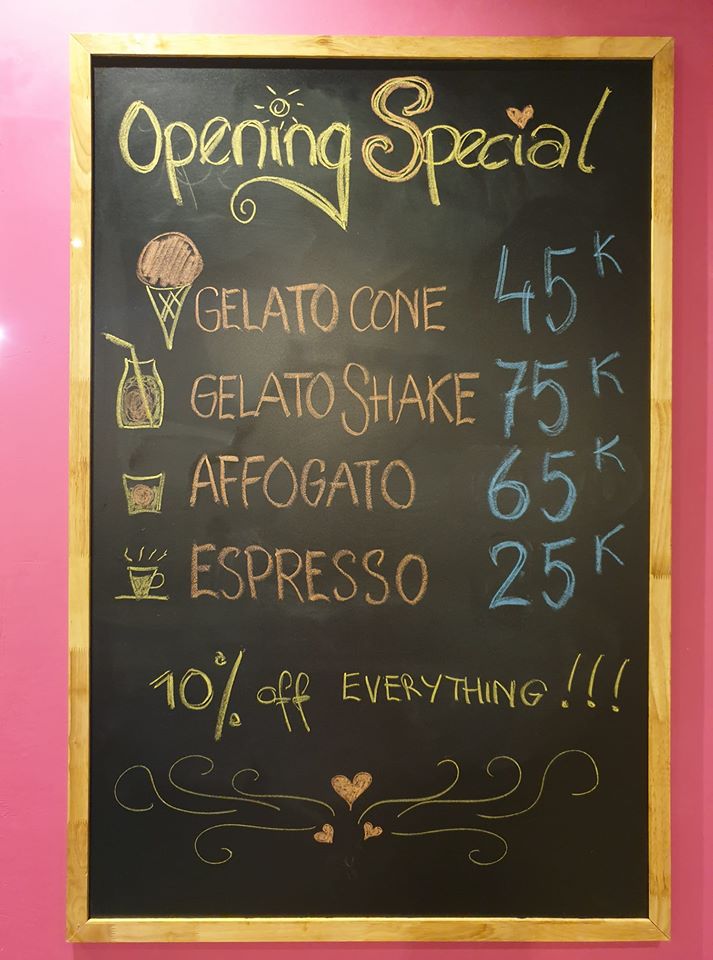 Opening Special
GELATO CONE 45K
GELATO SHAKE 75K
AFFOGATO 65K
ESPRESSO 25K
10% off EVERYTHING!!!